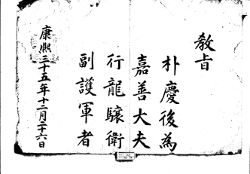 教旨
朴慶後為
嘉善大夫
行龍驤衛
副護軍者
康熙三十五年十二月二十六日